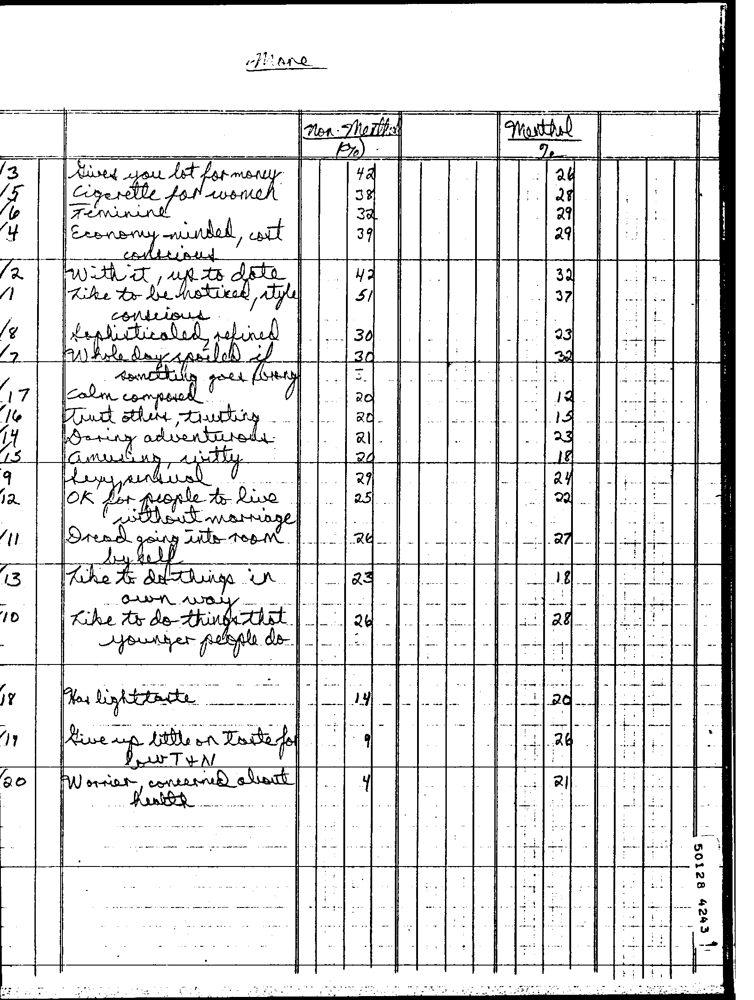 More
Non-Menthol Menthol
(%) %
/3 Gives you lot for money 42 26
/5 Cigarette for women 38 28
/6 Feminine 32 29
/4 Economy-minded, cost 39 29
conscious
/2 With it, up to date 42 32
/1 Like to be noticed, style 51 37
conscious
/8 Sophisticated, refined 30 23
/7 Whole day spoiled if 30 32
something goes wrong
/17 Calm composed 20 12
/16 Trust others, trusting 20 15
/14 Daring adventurous 21 23
/15 Amusing, witty 20 18
9 Sexy, sensual 29 24
12 OK for people to live 25 22
without marriage
/11 Dread going into room 26 27
by self
/13 Like to do things in 23 18
own way
/10 Like to do things that 26 28
younger people do
/18 Has light taste 14 20
/19 Give up little on taste for 9 26
low T+N
/20 Worrier, concerned about 4 21
health
50128 4243